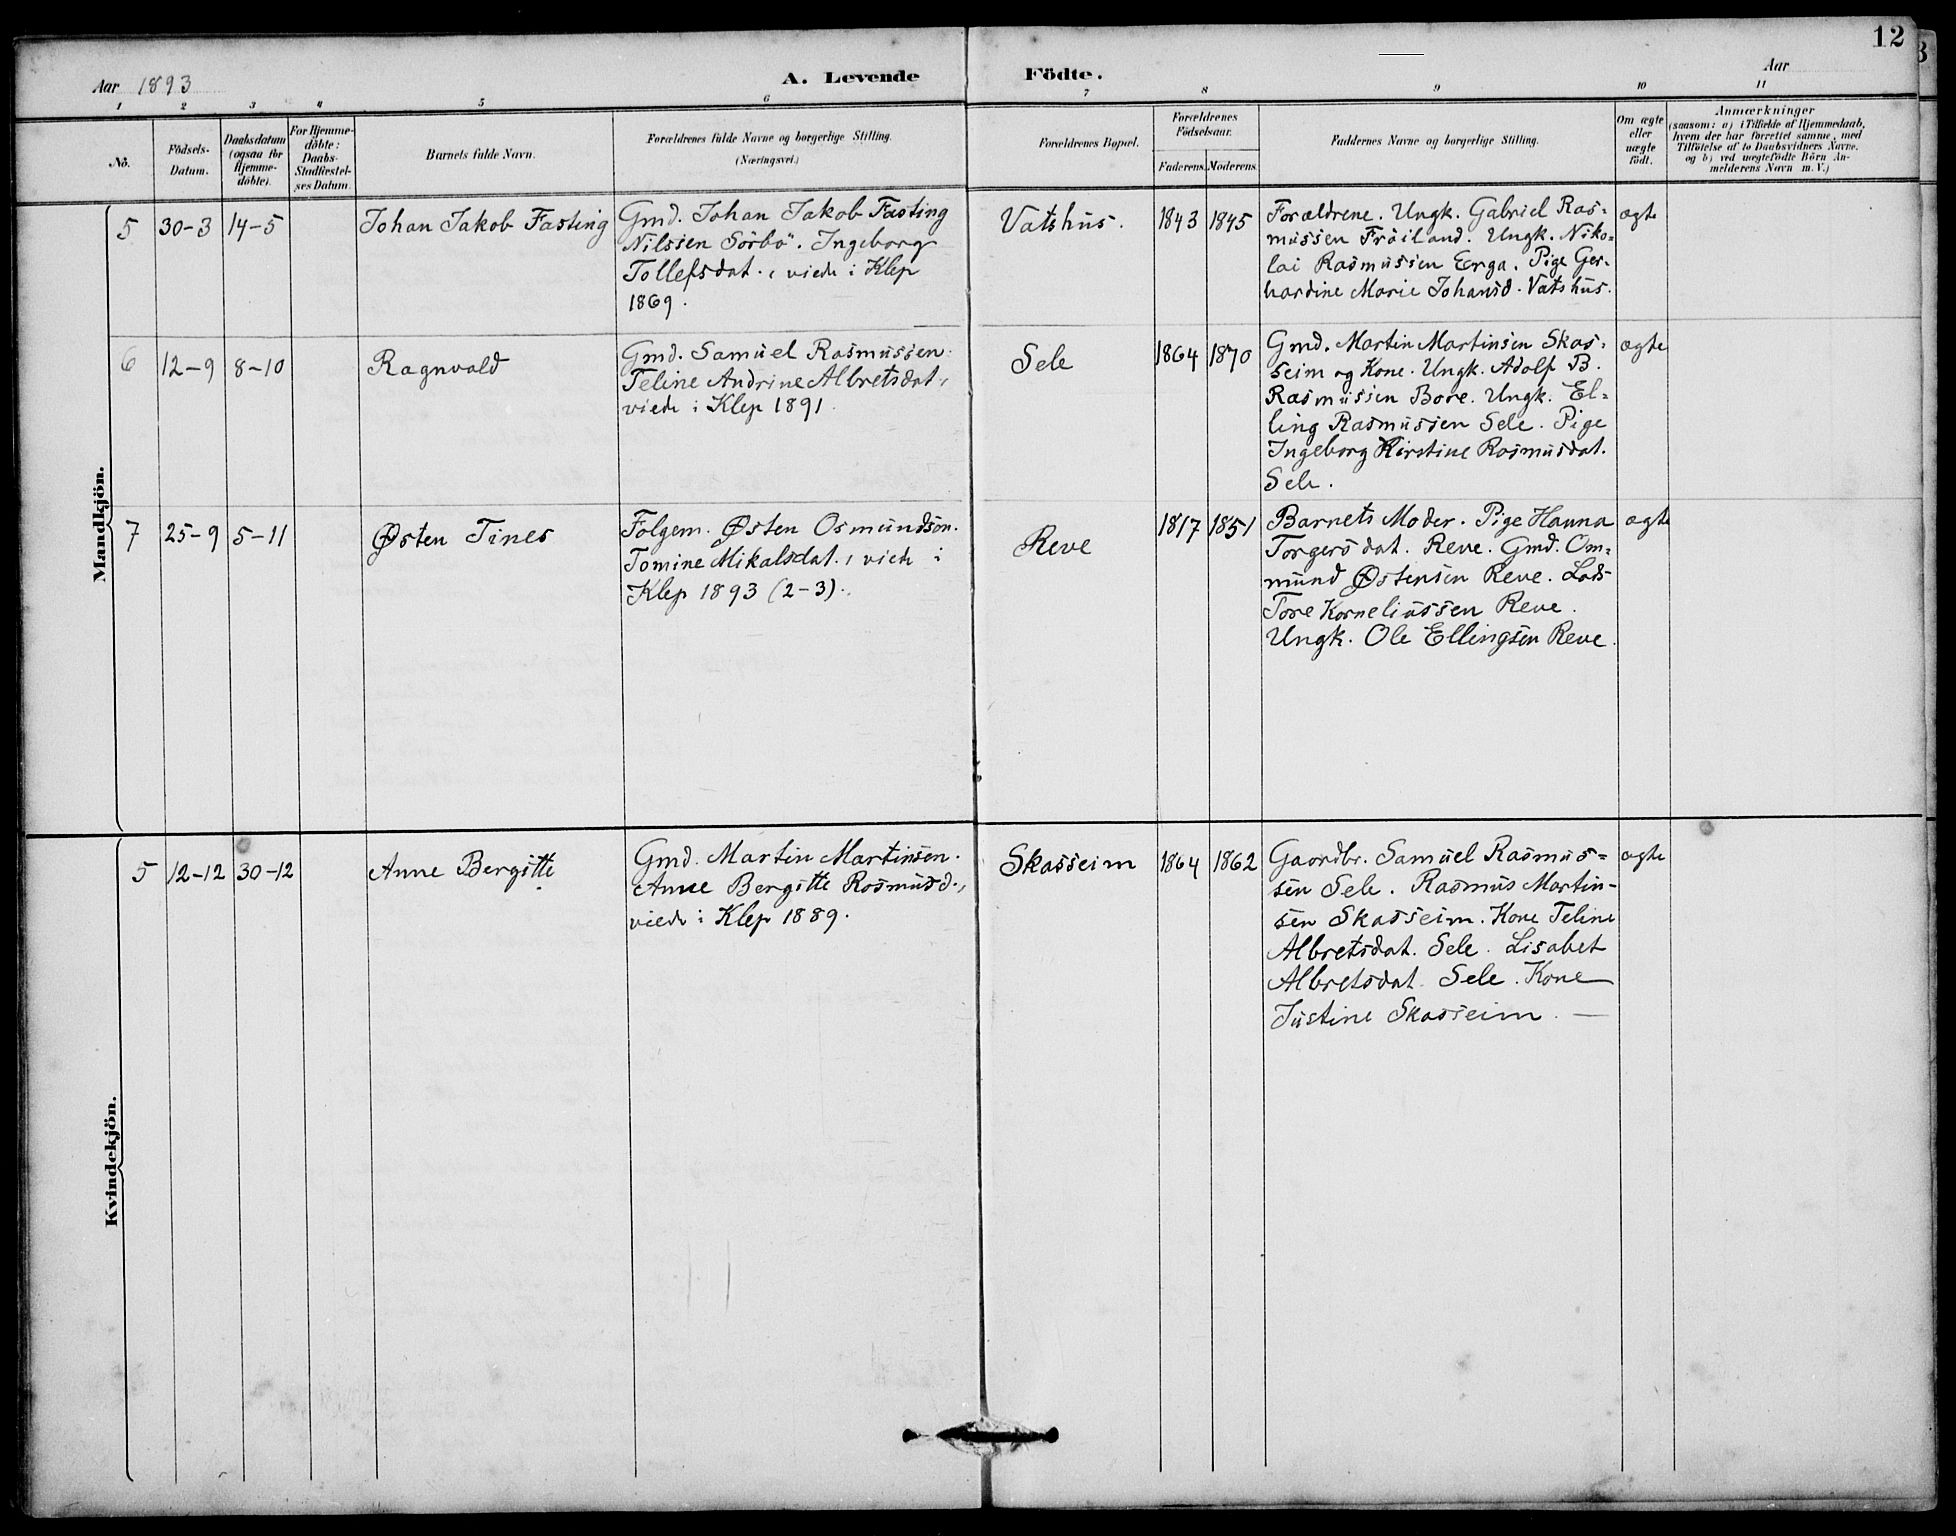 12
Aar 1893
A. Levende Födte.
Aar
1 2 3 4 5 6 7 8 9 10 11
No.
Födsels-
Datum.
Daabsdatum
(ogsaa for
Hjemme-
döbte).
For Hjemme-
döbte:
Daabs-
Stadfæstel-
ses Datum.
Barnets fulde Navn.
Forældrenes fulde Navne og borgerlige Stilling.
(Næringsvei.)
Forældrenes Bopæl.
Forældrenes
Födselsaar.
Faderens. Moderens.
Faddernes Navne og borgerlige Stilling.
Om ægte
eller
uægte
födt.
Anmærkninger
(saasom: a) i Tilfælde af Hjemmedaab,
hvem der har forrettet samme, med
Tilföielse af to Daabsvidners Navne,
og b) ved uægtefödte Börn An-
melderens Navn m. V.)
Mandkjön.
5 30-3 14-5 Johan Jakob Fasting
Gmd. Johan Jakob Fasting
Nilssen Sörbö. Ingeborg
Tollefsdat., viede i Klep
1869.
Vatshus. 1843 1845
Forældrene. Ungk. Gabriel Ras=
mussen Fröiland. Ungk. Niko=
lai Rasmussen Erga. Pige Ger=
hardine Marie Johansd. Vatshus.
ægte
6 12-9 8-10 Ragnvald
Gmd. Samuel Rasmussen.
Teline Andrine Albretsdat,
viede i Klep 1891.
Sele 1864 1870
Gmd. Martin Martinsen Skas=
seim og Kone. Ungk. Adolf B.
Rasmussen Bore. Ungk. El=
ling Rasmussen Sele. Pige
Ingeborg Kirstine Rasmusdat.
Sele.
ægte
7 25-9 5-11 Østen Tines
Folgem. Østen Osmundsøn.
Tomine Mikalsdat., viede i
Klep 1893 (2-3).
Reve 1817 1851
Barnets Moder. Pige Hanna
Torgersdat. Reve. Gmd. Om=
mund Østensen Reve. Lods
Tore Korneliussen Reve.
Ungk. Ole Ellingsen Reve.
ægte
Kvindekjön.
5 12-12 30-12 Anne Bergitte
Gmd. Martin Martinsen.
Anne Bergitte Rasmusd.,
viede i Klep 1889.
Skasseim 1864 1862
Gaardbr. Samuel Rasmus=
sen Sele. Rasmus Martin-
sen Skasseim. Kone Teline
Albretsdat. Sele. Lisabet
Albretsdat. Sele. Kone
Justine Skasseim. —
ægte